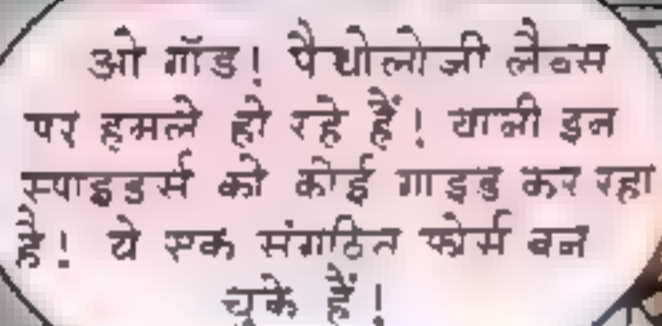 ओ गॉड! पैथोलोजी लैब्स
पर हमले हो रहे हैं! यानी इन
स्पाइडर्स को कोई गाइड कर रहा
है! ये एक संगठित फोर्स बन
चुके हैं!